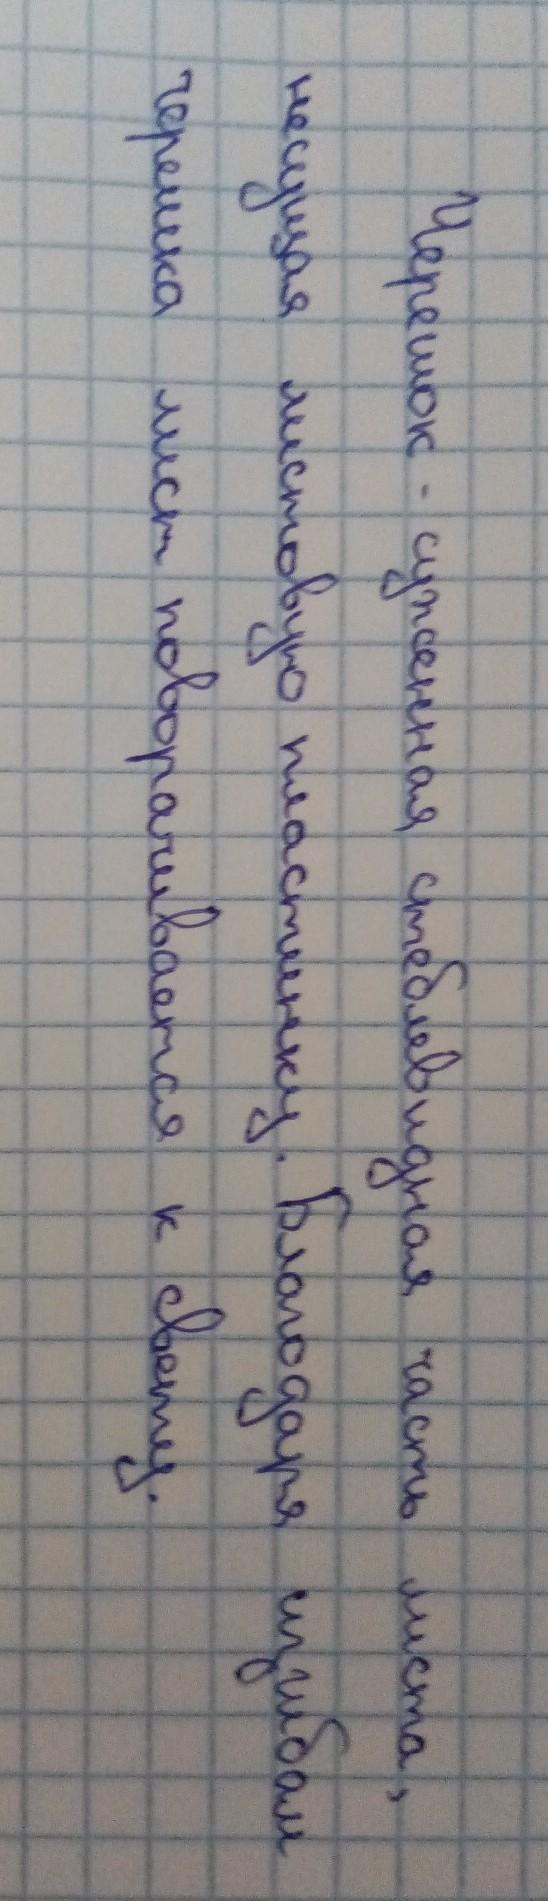 Черешок - суженная стеблевидная часть листа,
несущая листовую пластинку. Благодаря изгибам
черешка лист поворачивается к свету.